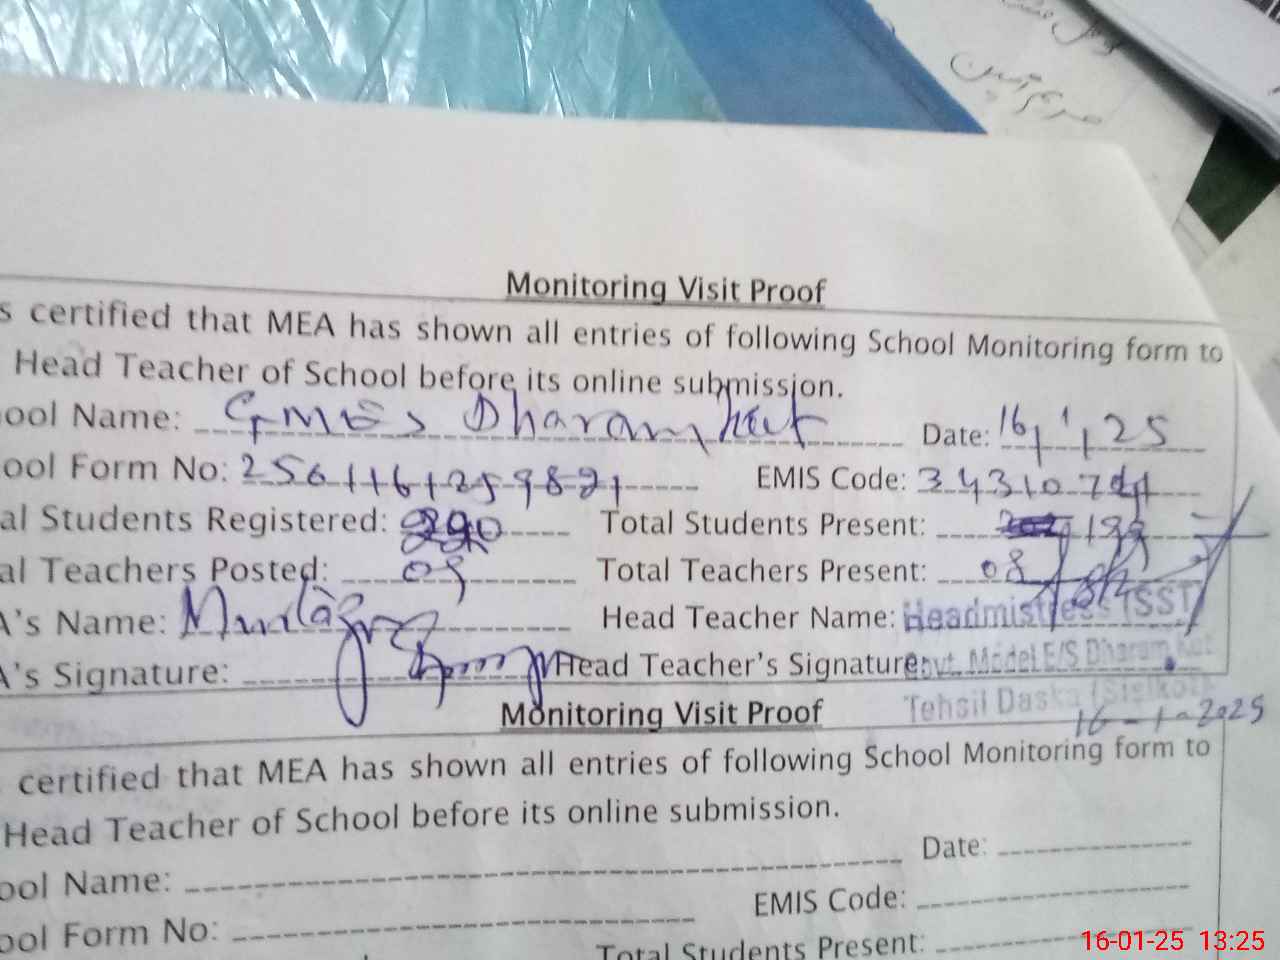 Monitoring Visit Proof
s certified that MEA has shown all entries of following School Monitoring form to
Head Teacher of School before its online submission.
ool Name: GMES Dharamkot Date: 16/1/25
ool Form No: EMIS Code:
al Students Registered: Total Students Present:
al Teachers Posted: Total Teachers Present: 08
A's Name: Head Teacher Name: Headmistress (SST)
A's Signature: Head Teacher's Signature: Govt. Model E/S Dharam Kot
Tehsil Daska (Sialkot)
16-1-2025
Monitoring Visit Proof
certified that MEA has shown all entries of following School Monitoring form to
Head Teacher of School before its online submission.
ool Name: Date:
ool Form No: EMIS Code:
Total Students Present:
16-01-25 13:25